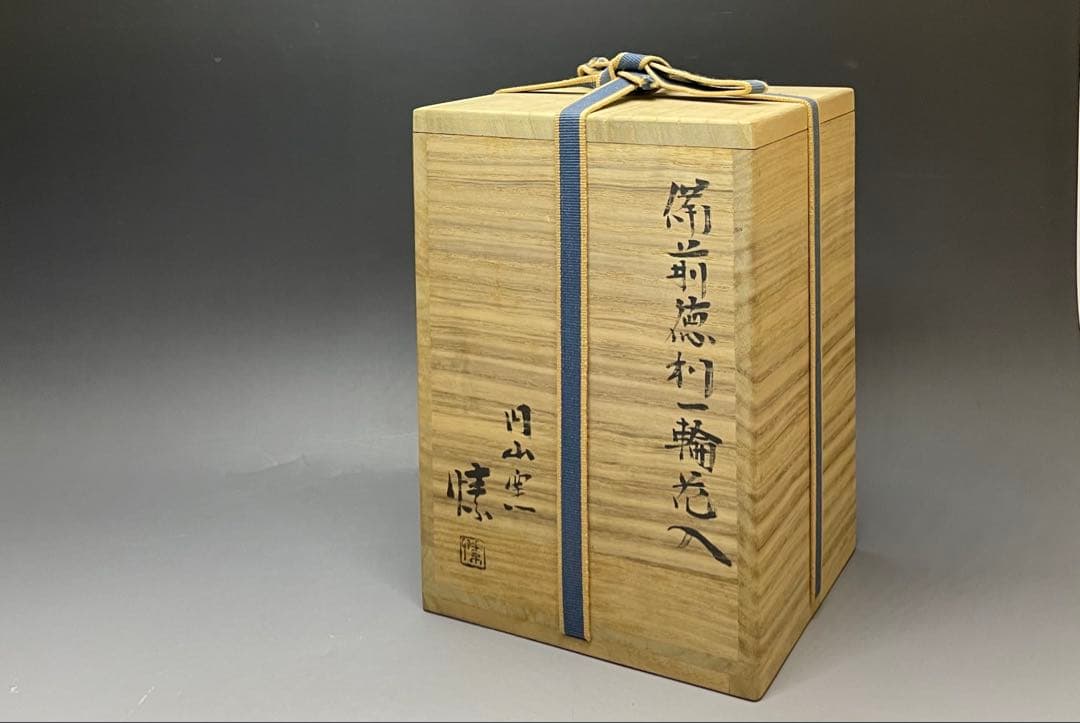 備前徳利一輪花入
円山窯